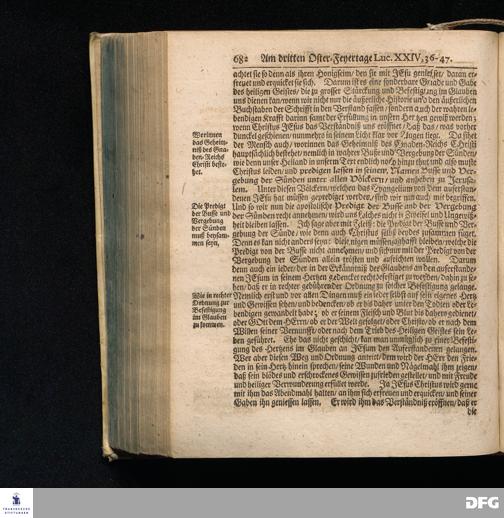 682 Am dritten Oster-Feyertage Luc. XXIV, 36-47.
achtet sie so denn als ihren Honigseim, den sie mit JEsu geniesset, daran er-
freuet und erquicket sie sich. Darum ist es eine sonderbare Gnade und Gabe
des heiligen Geistes, die zu grosser Stärckung und Befestigung im Glauben
uns dienen kan, wenn wir nicht nur die äußerliche Historie und den äußerlichen
Buchstaben der Schrifft in den Verstand fassen, sondern auch der wahren le-
bendigen Krafft darinn samt der Erfüllung in unserm Hertzen gewiß werden;
wenn Christus JEsus das Verständniß uns eröffnet, daß das, was vorher
dunckel geschienen, nunmehro in seinem Licht klar vor Augen liegt. Da siehet
der Mensch auch, worinnen das Geheimniß des Gnaden-Reichs Christi
hauptsächlich bestehet, nemlich in wahrer Busse und Vergebung der Sünden,
wie denn unser Heiland in unserm Text endlich noch hinzu thut, und also muste
Christus leiden, und predigen lassen in seinem Namen Busse und Ver-
gebung der Sünden unter allen Völckern, und anheben zu Jerusa-
lem. Unter diesen Völckern, welchen das Evangelium von dem auferstan-
denen JEsu hat müssen geprediget werden, sind wir nun auch mit begriffen.
Und so wir nun die apostolische Predigt der Busse und der Vergebung
der Sünden recht annehmen, wird uns solches nicht in Zweifel und Ungewiß-
heit bleiben lassen. Ich sage aber mit Fleiß: die Predigt der Busse und Ver-
gebung der Sünde, wie denn auch Christus selbst beydes zusammen füget.
Denn es kan nicht anders seyn: diejenigen müssen zaghafft bleiben, welche die
Predigt von der Busse nicht annehmen, und sich nur mit der Predigt von der
Vergebung der Sünden allein trösten und aufrichten wollen. Darum
denn auch ein ieder, der in der Erkänntniß des Glaubens an den auferstande-
nen JEsum in seinem Hertzen gedencket recht befestiget zu werden, dahin zu se-
hen, daß er in rechter gebührender Ordnung zu solcher Befestigung gelange.
Nemlich erst und vor allen Dingen muß ein ieder selbst auf sein eigenes Hertz
und Gewissen sehen, und bedencken, ob er bis daher unter den Todten oder Le-
bendigen gewandelt habe; ob er seinem Fleisch und Blut bis dahero gedienet,
oder GOtt dem HErrn, ob er der Welt gefolget, oder Christo, ob er nach dem
Willen seiner Vernunfft, oder nach dem Trieb des Heiligen Geistes sein Le-
ben geführet. Ehe das nicht geschicht, kan man unmöglich zu einer Befesti-
gung des Hertzens im Glauben an JEsum den Auferstandenen gelangen.
Wer aber diesen Weg und Ordnung antritt, dem wird der HErr den Frie-
den in sein Hertz hinein sprechen, seine Wunden und Nägelmahl ihm zeigen,
daß sein blödes und erschrockenes Gewissen zufrieden gestellet, und mit Freude
und heiliger Verwunderung erfüllet werde. Ja JEsus Christus wird gerne
mit ihm das Abendmahl halten, an ihm sich erfreuen und erquicken, und seiner
Gaben ihn geniessen lassen. Er wird ihm das Verständniß eröffnen, daß er
die
Worinnen
das Geheim-
niß des Gna-
den-Reichs
Christi beste-
het.
Die Predigt
der Busse und
Vergebung
der Sünden
muß beysam-
men seyn.
Wie in rechter
Ordnung zur
Befestigung
im Glauben
zu kommen.
FRANCKESCHE
STIFTUNGEN
DFG